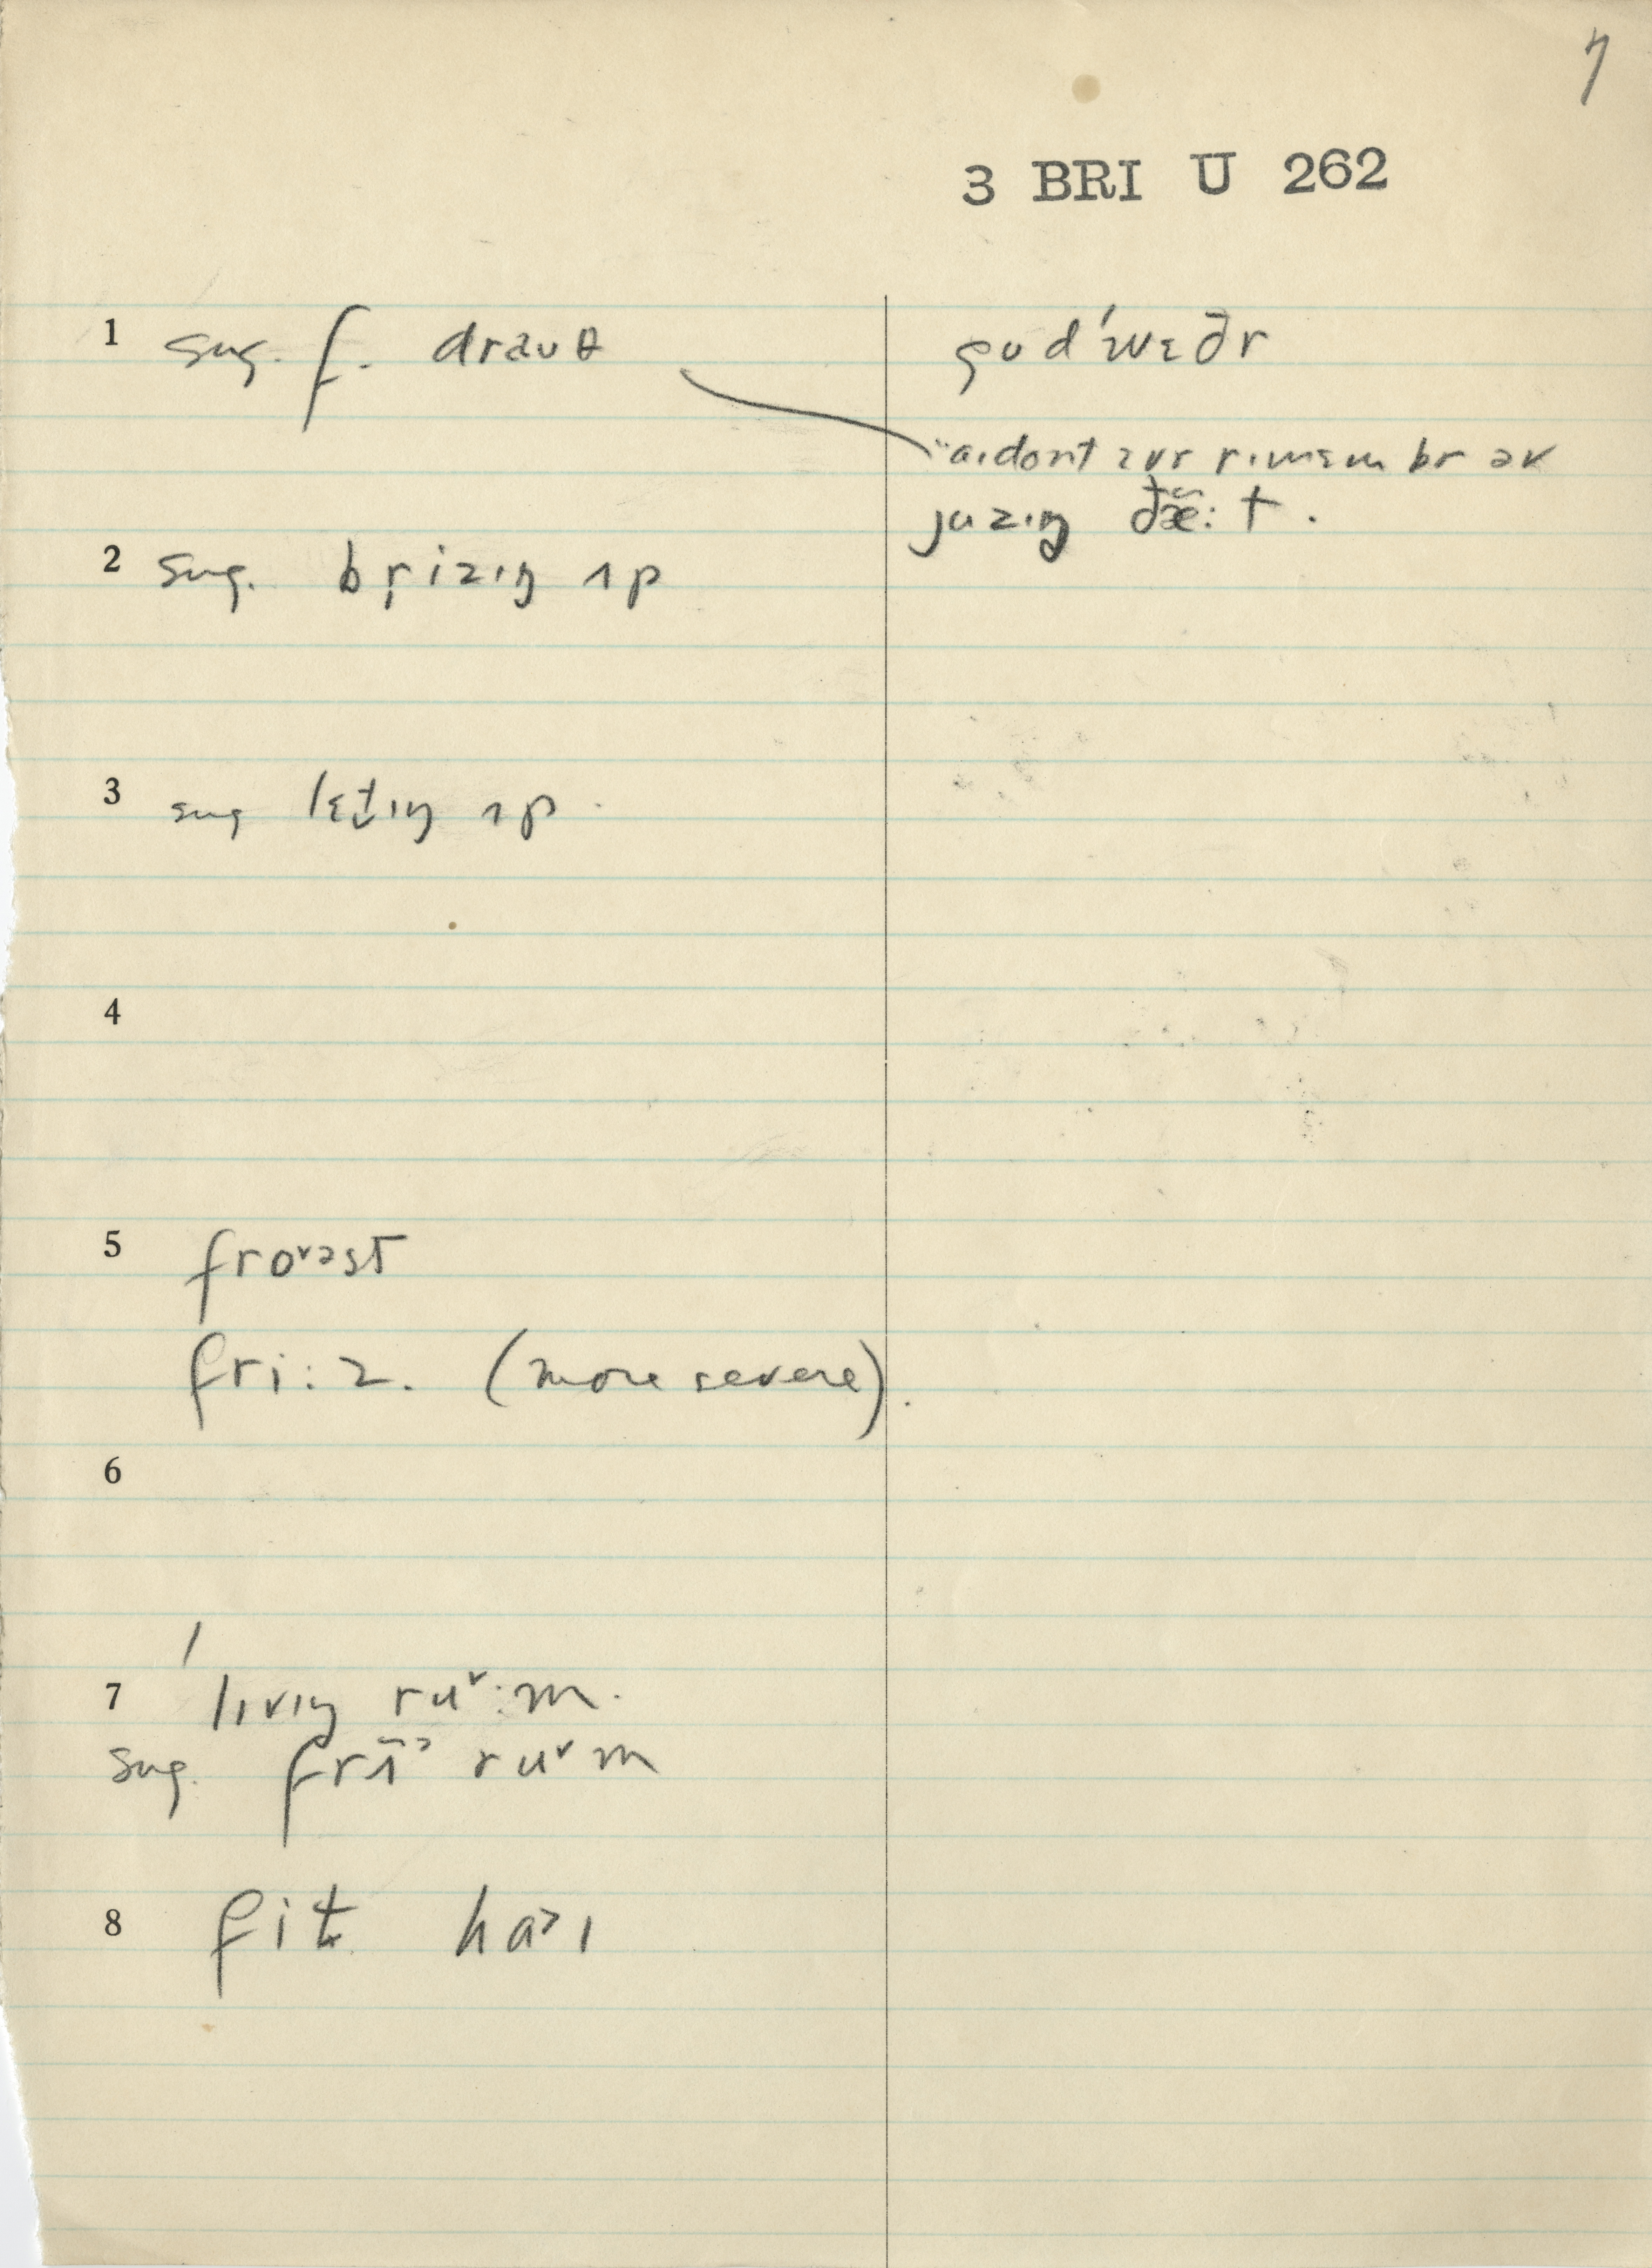 7
3 BRI U 262
1 sug. f. drauθ
gud ˈwɛðr
"aɪdont ɛvr rɪmɛmbr əv
juzɪŋ ðæ̃: t.
2 sug. br̥izɪŋ ʌp
3 sug lɛt̬ɪŋ ʌp.
4
5 froᵛəst
fri:z. (more severe).
6
7 ˈlɪvɪŋ ruᵛ:m.
sug. frʌ̃ ruᵛm
8 fit haɪ